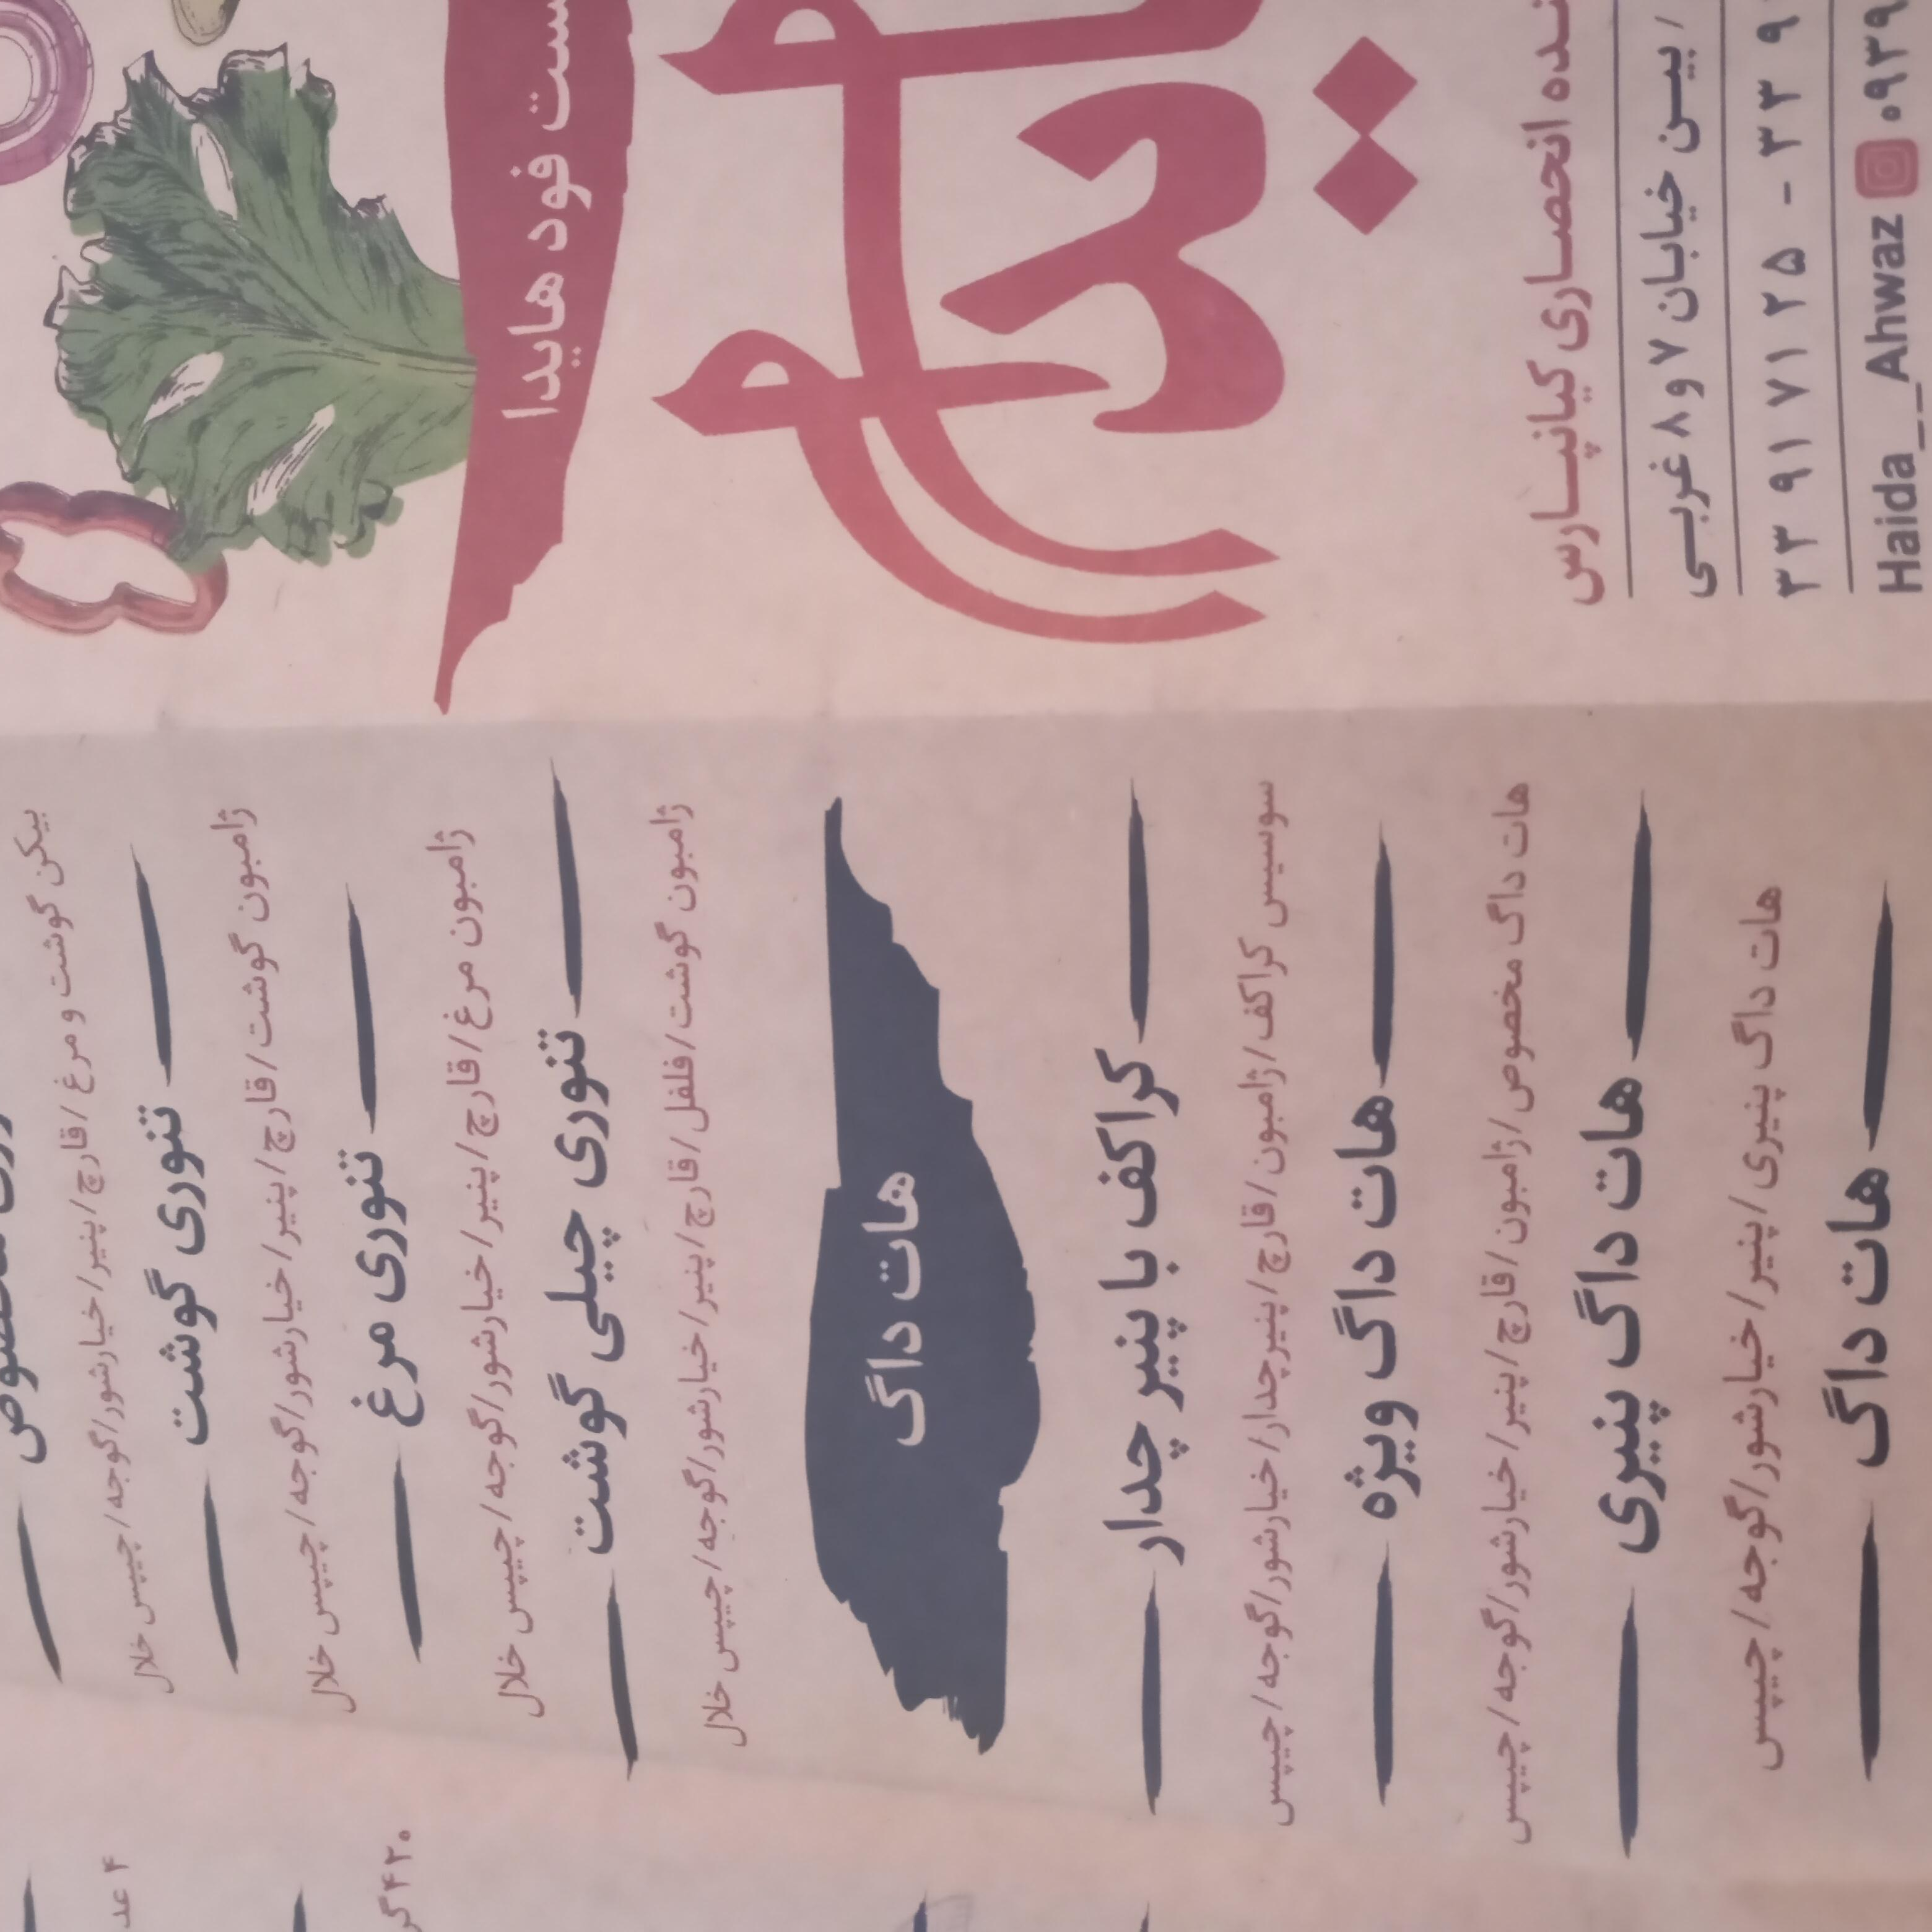 فست فود هایدا
هایدا
انحصاری کیانپارس
بین خیابان ۷ و ۸ غربی
۳۳ ۹۱ ۷۱ ۲۵ - ۳۳ ۹
Haida__Ahwaz ۰۹۳۹
بیکن گوشت و مرغ / قارچ / پنیر / خیارشور / گوجه / چیپس خلال
تنوری گوشت
ژامبون گوشت / قارچ / پنیر / خیارشور / گوجه / چیپس خلال
تنوری مرغ
ژامبون مرغ / قارچ / پنیر / خیارشور / گوجه / چیپس خلال
تنوری چیلی گوشت
ژامبون گوشت / فلفل / قارچ / پنیر / خیارشور / گوجه / چیپس خلال
هات داگ
کراکف با پنیر چدار
سوسیس کراکف / ژامبون / قارچ / پنیرچدار / خیارشور / گوجه / چیپس
هات داگ ویژه
هات داگ مخصوص / ژامبون / قارچ / پنیر / خیارشور / گوجه / چیپس
هات داگ پنیری
هات داگ پنیری / پنیر / خیارشور / گوجه / چیپس
هات داگ